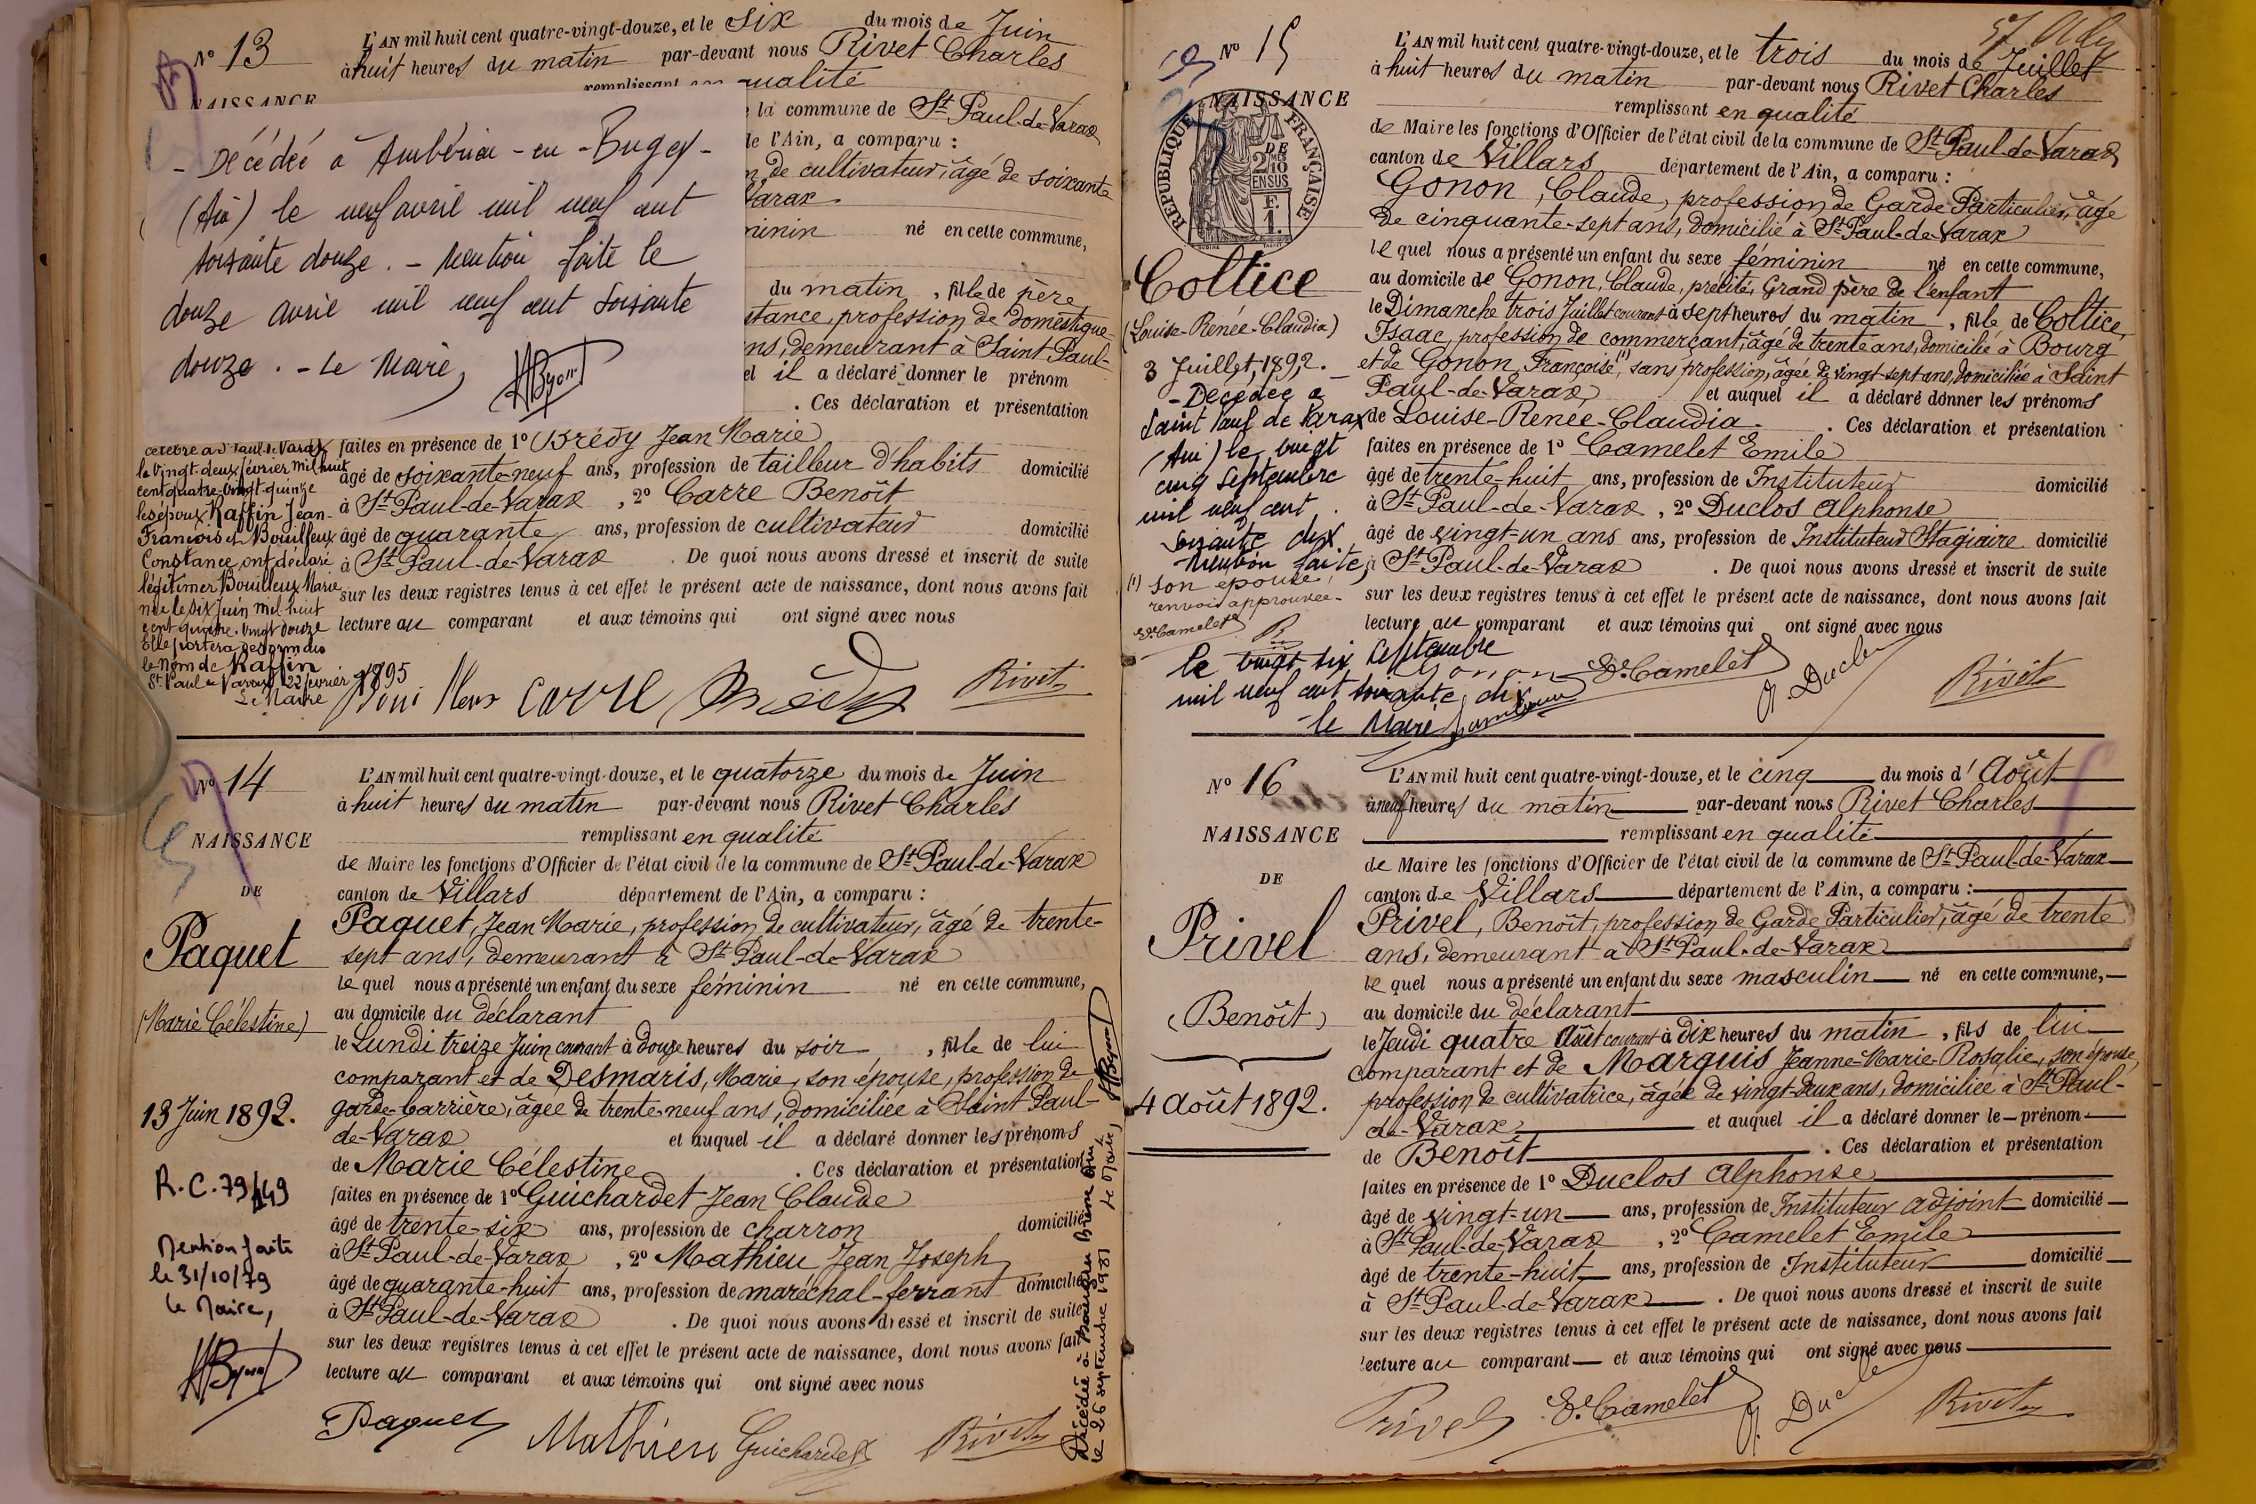 N° 13
L'AN mil huit cent quatre-vingt-douze, et le Six du mois de Juin
à huit heures du matin par-devant nous Rivet Charles
NAISSANCE
remplissant en qualité
la commune de St Paul-de-Varax
de l'Ain, a comparu :
de cultivateur, âgé de soixante
Varax
féminin né en cette commune,
du matin, fille de père
Constance, profession de domestique
ans, demeurant à Saint Paul-
il a déclaré donner le prénom
. Ces déclaration et présentation
- Décédée à Ambérieu-en-Bugey-
(Ain) le neuf avril mil neuf cent
soixante douze. - Mention faite le
douze avril mil neuf cent soixante
douze. - Le Maire,
faites en présence de 1° Brédy Jean Marie
âgé de soixante-neuf ans, profession de tailleur d'habits domicilié
à St Paul-de-Varax, 2° Carre Benoît
âgé de quarante ans, profession de cultivateur domicilié
à St Paul-de-Varax. De quoi nous avons dressé et inscrit de suite
sur les deux registres tenus à cet effet le présent acte de naissance, dont nous avons fait
lecture au comparant et aux témoins qui ont signé avec nous
célébré à St Paul-de-Varax
le vingt-deux février mil huit
cent quatre-vingt-quinze
les époux Raffin Jean-
François et Bouilleux
Constance, ont déclaré
légitimer Bouilleux Marie
née le six Juin mil huit
cent quatre-vingt douze
Elle portera désormais
le nom de Raffin
St Paul de Varax, 22 février 1895
Le Maire
carre Brédy Rivet
N° 14
NAISSANCE
DE
Paquet
(Marie Célestine)
13 Juin 1892.
R.C. 79/449
Mention faite
le 31/10/79
Le Maire,
L'AN mil huit cent quatre-vingt-douze, et le quatorze du mois de Juin
à huit heures du matin par-devant nous Rivet Charles
remplissant en qualité
de Maire les fonctions d'Officier de l'état civil de la commune de St Paul-de-Varax
canton de Villars département de l'Ain, a comparu :
Paquet, Jean Marie, profession de cultivateur, âgé de trente-
sept ans, demeurant à St Paul-de-Varax
lequel nous a présenté un enfant du sexe féminin né en cette commune,
au domicile du déclarant
le Lundi treize Juin courant à douze heures du soir, fille de lui
comparant et de Desmaris, Marie, son épouse, profession de
garde-barrière, âgée de trente-neuf ans, domiciliée à Saint Paul-
de-Varax et auquel il a déclaré donner les prénoms
de Marie Célestine. Ces déclaration et présentation
faites en présence de 1° Guichardet Jean Claude
âgé de trente-six ans, profession de charron domicilié
à St Paul-de-Varax, 2° Mathieu Jean Joseph
âgé de quarante-huit ans, profession de maréchal-ferrant domicilié
à St Paul-de-Varax. De quoi nous avons dressé et inscrit de suite
sur les deux registres tenus à cet effet le présent acte de naissance, dont nous avons fait
lecture au comparant et aux témoins qui ont signé avec nous
Paquet Mathieu Guichardet Rivet
Décédée à Bourg en Bresse Ain
le 26 septembre 1981 Le Maire,
N° 15
NAISSANCE
RÉPUBLIQUE FRANÇAISE
2 DMES 10
EN SUS
F. 1.
Coltice
(Louise-Renée-Claudia)
3 Juillet, 1892.
- Décédée à
Saint Paul de Varax
(Ain) le vingt
cinq septembre
mil neuf cent
soixante dix
Mention faite,
(1) son épouse,
renvoi approuvée.
Ee Camelet
R
le vingt six septembre
mil neuf cent soixante dix
le Maire
L'AN mil huit cent quatre-vingt-douze, et le trois du mois de Juillet
à huit heures du matin par-devant nous Rivet Charles
remplissant en qualité
de Maire les fonctions d'Officier de l'état civil de la commune de St Paul-de-Varax
canton de Villars département de l'Ain, a comparu :
Gonon, Claude, profession de Garde Particulier, âgé
de cinquante-sept ans, domicilié à St Paul-de-Varax
lequel nous a présenté un enfant du sexe féminin né en cette commune,
au domicile de Gonon, Claude, précité, Grand père de l'enfant
le Dimanche trois Juillet courant à sept heures du matin, fille de Coltice,
Isaac, profession de commerçant, âgé de trente ans, domicilié à Bourg
et de Gonon, Françoise (1), sans profession, âgée de vingt-sept ans, domiciliée à Saint
Paul-de-Varax et auquel il a déclaré donner les prénoms
de Louise-Renée-Claudia. Ces déclaration et présentation
faites en présence de 1° Camelet Emile
âgé de trente-huit ans, profession de Instituteur domicilié
à St Paul-de-Varax, 2° Duclos Alphonse
âgé de vingt-un ans ans, profession de Instituteur Stagiaire domicilié
à St Paul-de-Varax. De quoi nous avons dressé et inscrit de suite
sur les deux registres tenus à cet effet le présent acte de naissance, dont nous avons fait
lecture au comparant et aux témoins qui ont signé avec nous
Gonon Ee Camelet A. Duclos Rivet
N° 16
NAISSANCE
DE
Privel
(Benoît)
4 Août 1892.
L'AN mil huit cent quatre-vingt-douze, et le cinq du mois d'Août
à neuf heures du matin par-devant nous Rivet Charles
remplissant en qualité
de Maire les fonctions d'Officier de l'état civil de la commune de St Paul-de-Varax
canton de Villars département de l'Ain, a comparu :
Privel, Benoît, profession de Garde Particulier, âgé de trente
ans, demeurant à St Paul-de-Varax
lequel nous a présenté un enfant du sexe masculin né en cette commune,
au domicile du déclarant
le Jeudi quatre Août courant à dix heures du matin, fils de lui
comparant et de Marquis Jeanne-Marie-Rosalie, son épouse,
profession de cultivatrice, âgée de vingt-deux ans, domiciliée à St Paul-
de-Varax et auquel il a déclaré donner le prénom
de Benoît. Ces déclaration et présentation
faites en présence de 1° Duclos Alphonse
âgé de vingt-un ans, profession de Instituteur adjoint domicilié
à St Paul-de-Varax, 2° Camelet Emile
âgé de trente-huit ans, profession de Instituteur domicilié
à St Paul-de-Varax. De quoi nous avons dressé et inscrit de suite
sur les deux registres tenus à cet effet le présent acte de naissance, dont nous avons fait
lecture au comparant et aux témoins qui ont signé avec nous
Privel Ee Camelet A. Duclos Rivet